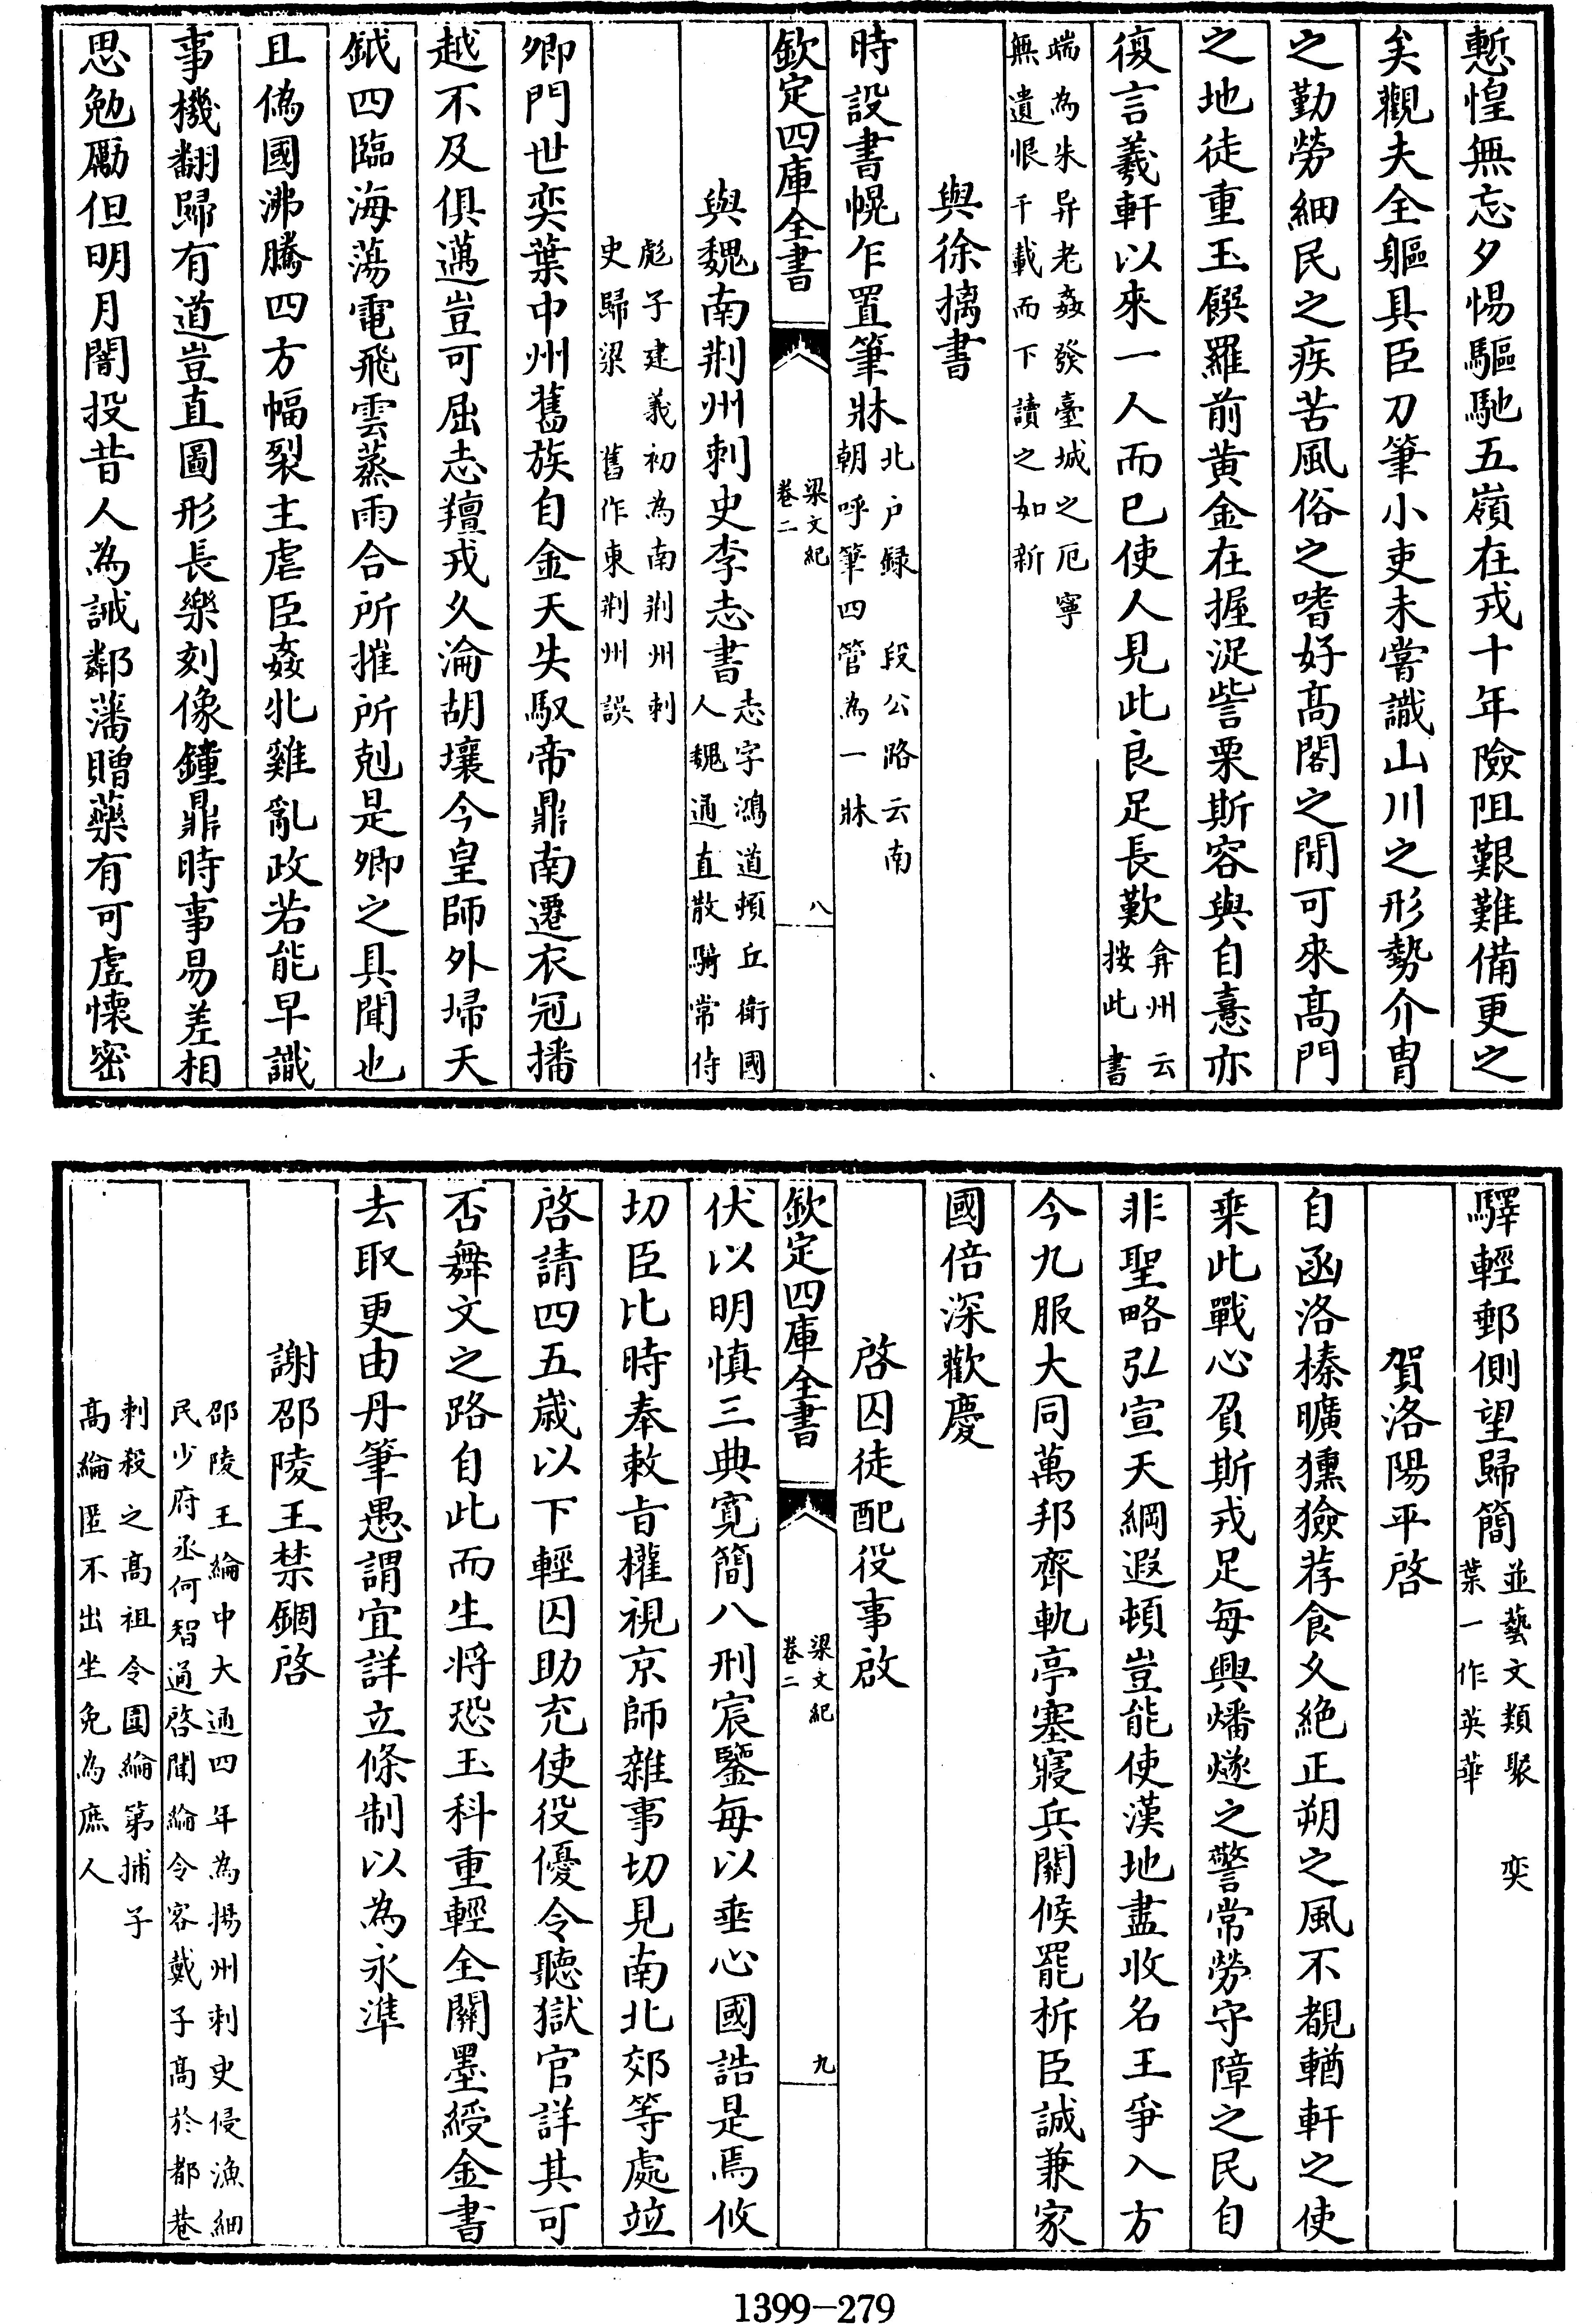 慙惶無忘夕惕驅馳五嶺在戎十年險阻艱難備更之
矣觀夫全軀具臣刀筆小吏未嘗識山川之形勢介胄
之勤勞細民之疾苦風俗之嗜好髙閣之閒可來髙門
之地徒重玉饌羅前黄金在握浞訾栗斯容與自憙亦
復言羲軒以來一人而已使人見此良足長歎弇州云按此書
端為朱异老姦發臺城之厄寧
無遺恨千載而下讀之如新
與徐摛書
時設書幌乍置筆牀北户録 段公路云南
朝呼筆四管為一牀
欽定四庫全書
梁文紀
卷二
八
與魏南荆州刺史李志書志字鴻道頓丘衛國
人魏通直散騎常侍
彪子建義初為南荆州刺
史歸梁 舊作東荆州誤
卿門世奕葉中州舊族自金天失馭帝鼎南遷衣冠播
越不及俱邁豈可屈志羶戎久淪胡壤今皇師外掃天
鉞四臨海蕩電飛雲蒸雨合所摧所剋是卿之具聞也
且偽國沸騰四方幅裂主虐臣姦牝雞亂政若能早識
事機翻歸有道豈直圖形長樂刻像鐘鼎時事易差相
思勉勵但明月闇投昔人為誡鄰藩贈藥有可虚懐密
驛輕郵側望歸簡並藝文類聚 奕
葉一作英華
賀洛陽平啓
自函洛榛曠獯獫荐食久絶正朔之風不覩輶軒之使
乗此戰心負斯戎足每興燔燧之警常勞守障之民自
非聖略弘宣天綱遐頓豈能使漢地盡收名王爭入方
今九服大同萬邦齊軌亭塞寢兵關候罷柝臣誠兼家
國倍深歡慶
啓囚徒配役事啟
欽定四庫全書
梁文紀
卷二
九
伏以明慎三典寛簡八刑宸鑒每以垂心國誥是焉攸
切臣比時奉敕旨權視京師雜事切見南北郊等處竝
啓請四五歳以下輕囚助充使役優令聽獄官詳其可
否舞文之路自此而生將恐玉科重輕全關墨綬金書
去取更由丹筆愚謂宜詳立條制以為永準
謝邵陵王禁錮啓
邵陵王綸中大通四年為揚州刺史侵漁細
民少府丞何智通啓聞綸令客戴子髙於都巷
刺殺之髙祖令圍綸第捕子
髙綸匿不出坐免為庶人
1399—279